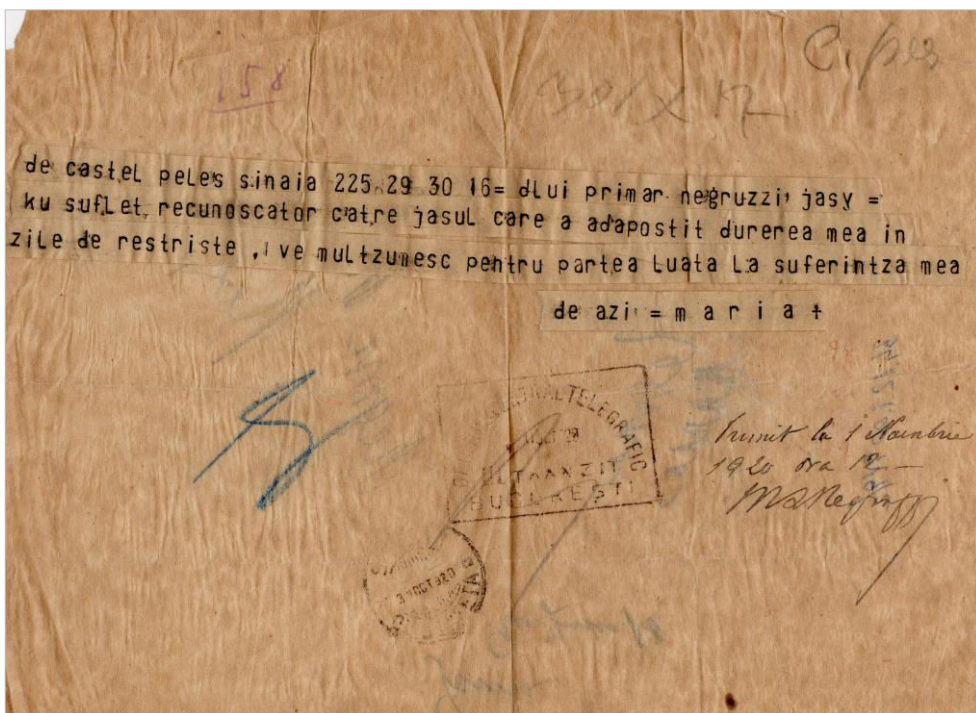 158
de castel peles sinaia 225 29 30 16= dlui primar negruzzi, jasy =
ku suflet recunoscator catre jasul care a adapostit durerea mea in
zile de restriste , i ve multzumesc pentru partea luata la suferintza mea
de azi = m a r i a +
TELEGRAFIC
BUCUREȘTI
Primit la 1 Noembrie
1920 ora 12 —